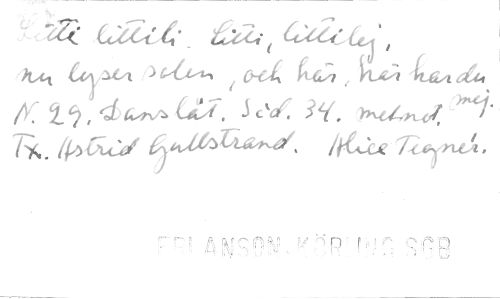 Litti littili. Litti, littilej,
nu lyser solen, och här, här har du mej.
N. 29. Danslåt. Sid. 34. met.not.
Tx. Astrid Gullstrand. Alice Tegnér.
ERLANSON-KÖRLING SGB